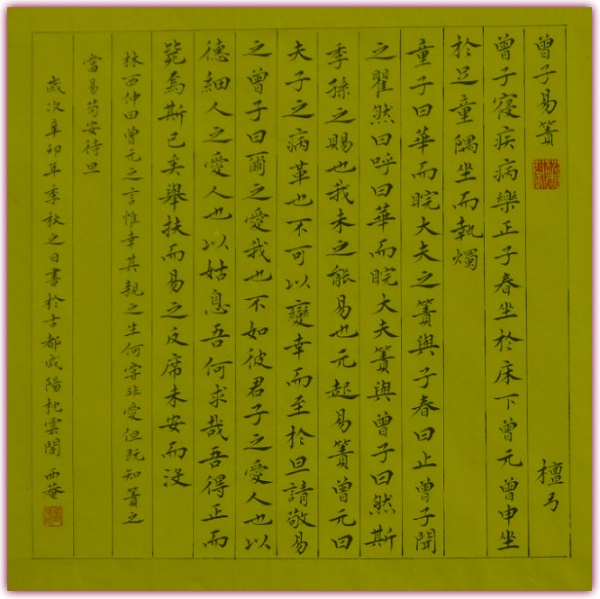 曾子易簀 檀弓
曾子寢疾病樂正子春坐於床下曾元曾申坐
於足童隅坐而執燭
童子曰華而睆大夫之簀與子春曰止曾子聞
之瞿然曰呼曰華而睆大夫簀與曾子曰然斯
季孫之賜也我未之能易也元起易簀曾元曰
夫子之病革也不可以變幸而至於旦請敬易
之曾子曰爾之愛我也不如彼君子之愛人也以
德細人之愛人也以姑息吾何求哉吾得正而
斃焉斯已矣舉扶而易之反席未安而沒
林西仲曰曾元之言惟幸其親之生何非愛但既知簀之
當易苟安待旦
歲次辛卯年季秋之日書於古都咸陽杞雲閣 西菴